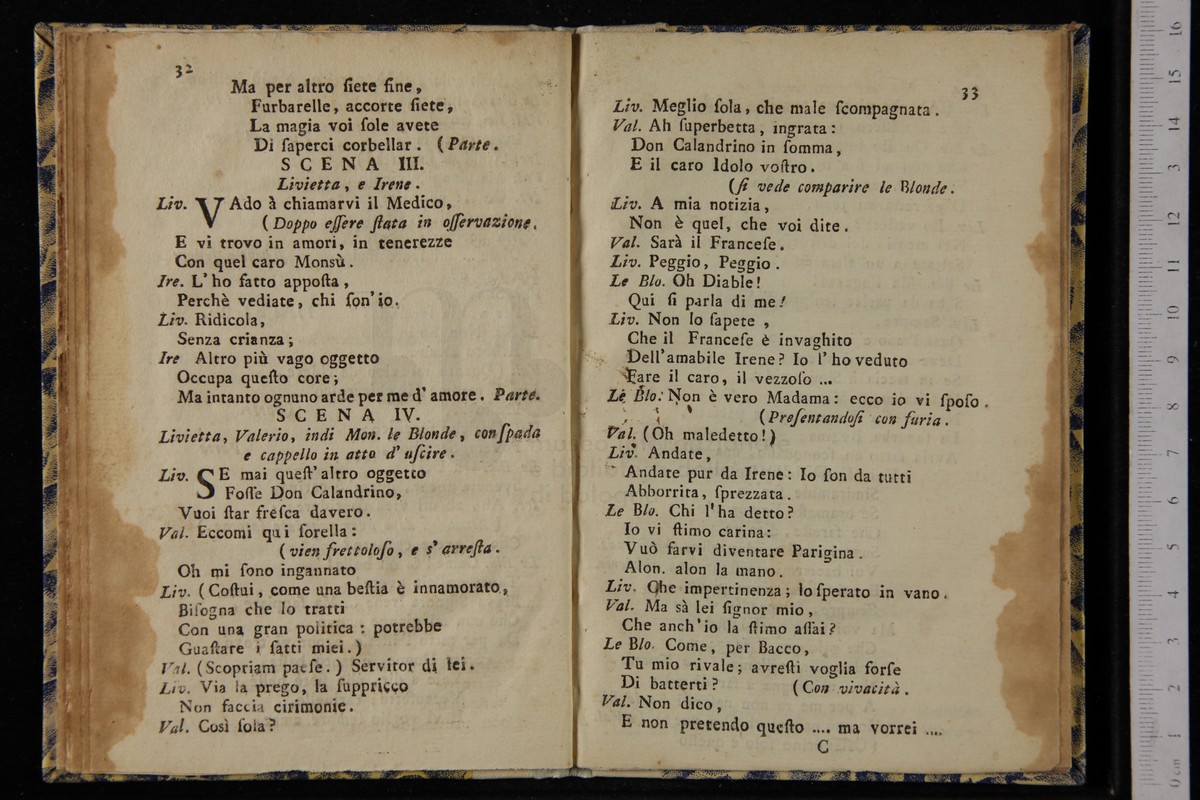 32
Ma per altro ſiete fine,
Furbarelle, accorte ſiete,
La magia voi ſole avete
Di ſaperci corbellar. (Parte.
SCENA III.
Livietta, e Irene.
Liv. VAdo à chiamarvi il Medico,
(Doppo eſſere ſtata in oſſervazione.
E vi trovo in amori, in tenerezze
Con quel caro Monsù.
Ire. L' ho fatto appoſta,
Perchè vediate, chi ſon' io.
Liv. Ridicola,
Senza crianza;
Ire Altro più vago oggetto
Occupa queſto core;
Ma intanto ognuno arde per me d' amore. Parte.
SCENA IV.
Livietta, Valerio, indi Mon. le Blonde, con ſpada
e cappello in atto d' uſcire.
Liv. SE mai queſt' altro oggetto
Foſſe Don Calandrino,
Vuoi ſtar freſca davero.
Val. Eccomi qui ſorella:
(vien frettoloſo, e s' arreſta.
Oh mi ſono ingannato
Liv. (Coſtui, come una beſtia è innamorato,
Biſogna che lo tratti
Con una gran politica: potrebbe
Guaſtare i fatti miei.)
Val. (Scopriam paeſe.) Servitor di lei.
Liv. Via la prego, la ſuppricco
Non faccia cirimonie.
Val. Così ſola?
33
Liv. Meglio ſola, che male ſcompagnata.
Val. Ah ſuperbetta, ingrata:
Don Calandrino in ſomma,
E il caro Idolo voſtro.
(ſi vede comparire le Blonde.
Liv. A mia notizia,
Non è quel, che voi dite.
Val. Sarà il Franceſe.
Liv. Peggio, Peggio.
Le Blo. Oh Diable!
Qui ſi parla di me!
Liv. Non lo ſapete,
Che il Franceſe è invaghito
Dell' amabile Irene? Io l' ho veduto
Fare il caro, il vezzoſo ...
Le Blo. Non è vero Madama: ecco io vi ſpoſo.
(Preſentandoſi con furia.
Val. (Oh maledetto!)
Liv. Andate,
Andate pur da Irene: Io ſon da tutti
Abborrita, ſprezzata.
Le Blo. Chi l'ha detto?
Io vi ſtimo carina:
Vuò farvi diventare Parigina.
Alon. alon la mano.
Liv. Che impertinenza; lo ſperato in vano.
Val. Ma sà lei ſignor mio,
Che anch'io la ſtimo aſſai?
Le Blo. Come, per Bacco,
Tu mio rivale; avreſti voglia forſe
Di batterti? (Con vivacità.
Val. Non dico,
E non pretendo queſto .... ma vorrei ....
C
0 cm 1 2 3 4 5 6 7 8 9 10 11 12 13 14 15 16